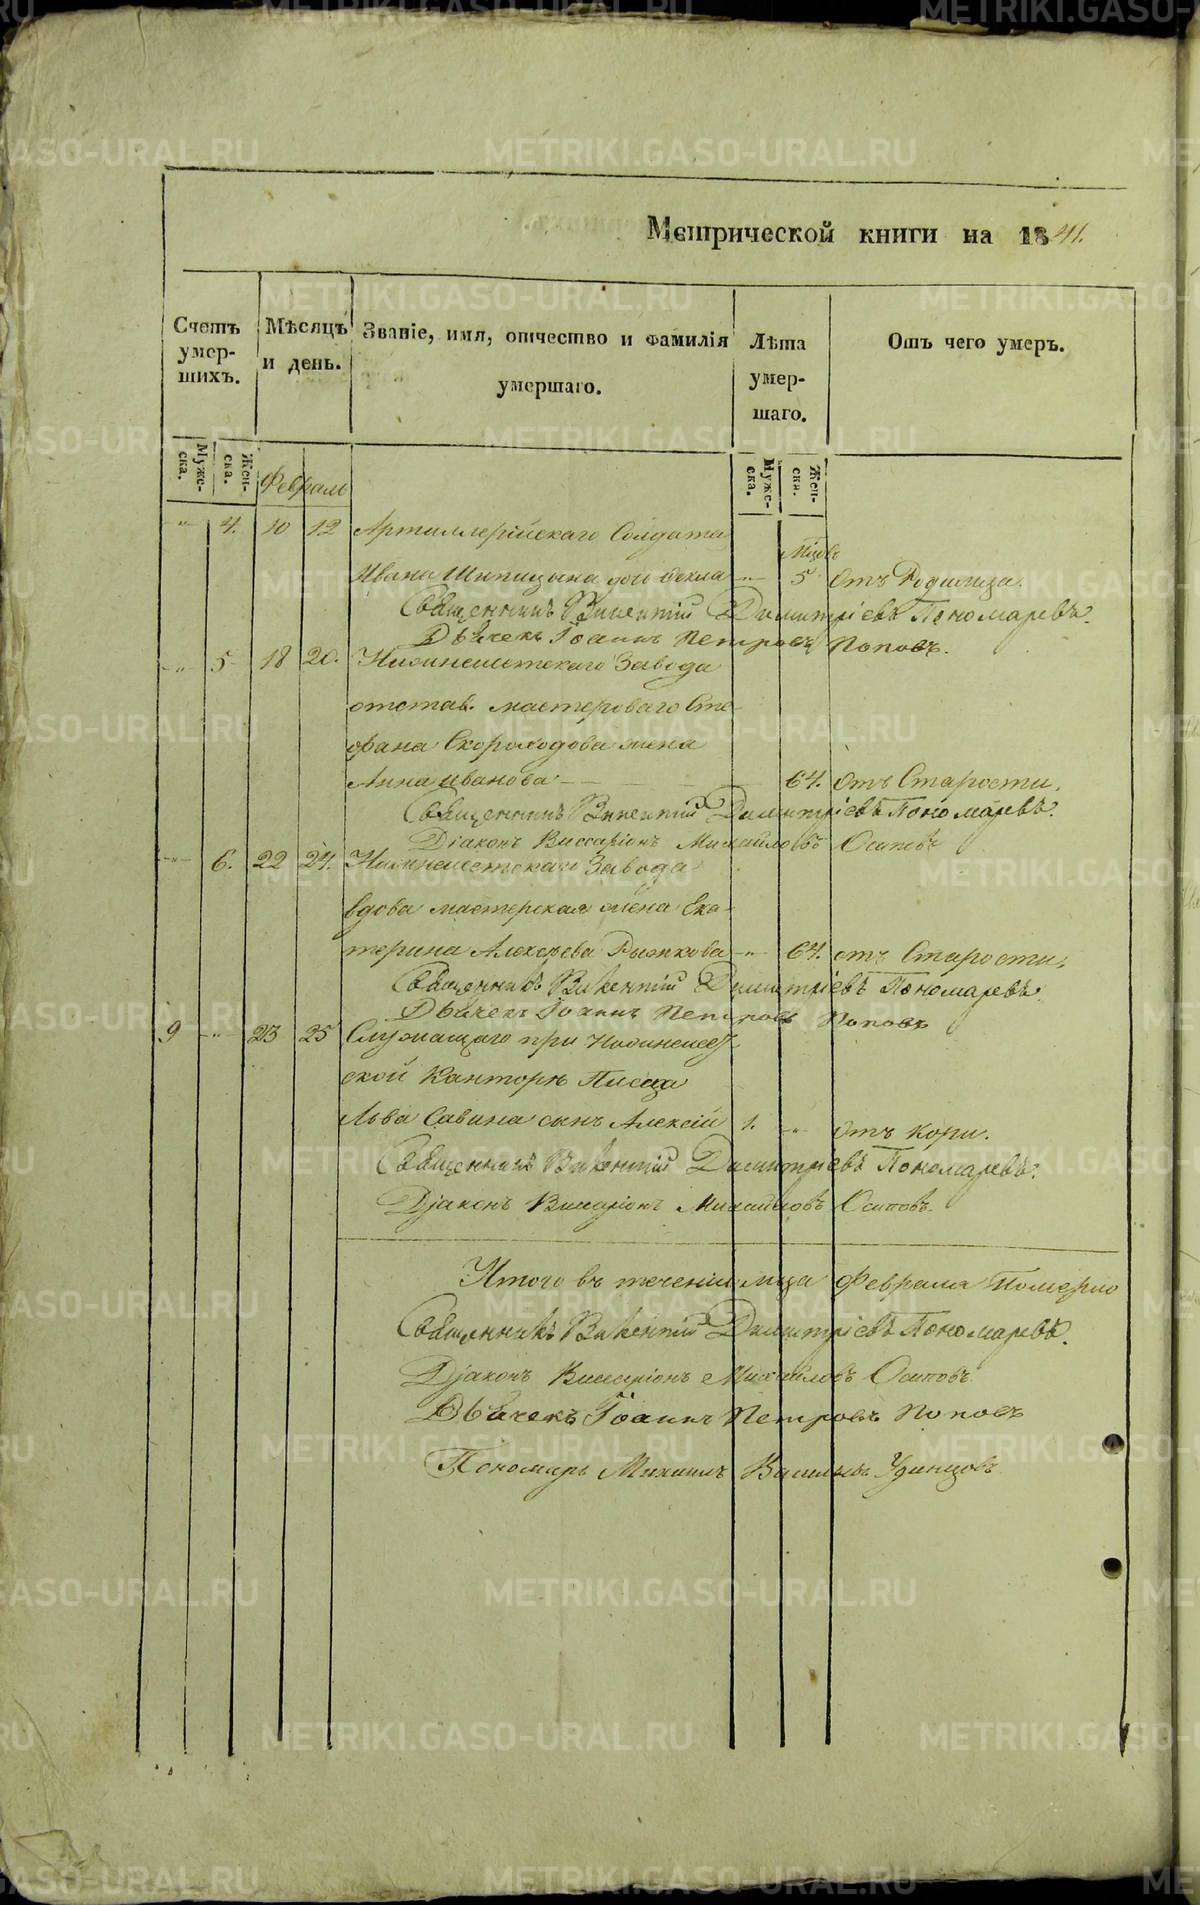 Метрической книги на 1841.
Счетъ умер-шихъ.
Мѣсяцъ и день.
Званіе, имя, отчество и фамилія умершаго.
Лѣта умер-шаго.
Отъ чего умеръ.
Муже-ска.
Жен-ска.
Муже-ска.
Жен-ска.
Февраль
„ 4. 10 12 Артиллерійскаго Солдата
Ивана дочь Фекла „ 5 отъ Родимца.
Священникъ Викентій Димитріевъ Пономаревъ.
Дьячекъ Іоаннъ Петровъ Поповъ.
„ 5 18 20. Завода
отстав. мастероваго Сте-
фана Скороходова жена
Анна Иванова 64. отъ Старости.
Священникъ Викентій Димитріевъ Пономаревъ.
Діаконъ Виссаріонъ Михайловъ Осиповъ
„ 6. 22 24. Завода
вдова мастерская жена Ека-
терина Алексѣева Рыжкова „ 64. отъ Старости.
Священникъ Викентій Димитріевъ Пономаревъ.
Дьячекъ Іоаннъ Петровъ Поповъ
9 „ 23 25 Служащаго при
ской Канторѣ Писца
Льва Савина сынъ Алексій 1. „ отъ кори.
Священникъ Викентій Димитріевъ Пономаревъ.
Діаконъ Виссаріонъ Михайловъ Осиповъ.
Итого въ теченіи мца Февраля Померло
Священникъ Викентій Димитріевъ Пономаревъ.
Діаконъ Виссаріонъ Михайловъ Осиповъ
Дьячекъ Іоаннъ Петровъ Поповъ
Пономарь Михаилъ Васильевъ Удинцовъ
METRIKI.GASO-URAL.RU